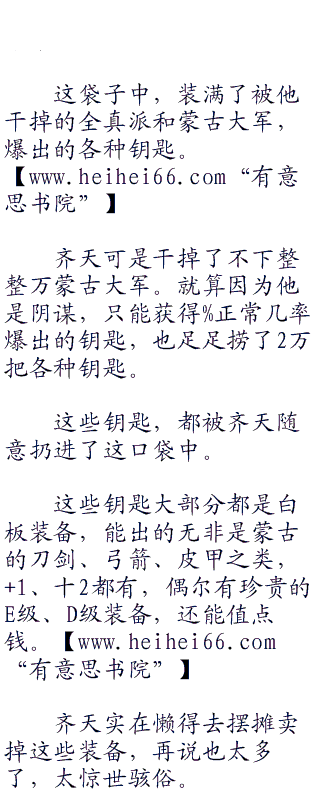 这袋子中，装满了被他
干掉的全真派和蒙古大军，
爆出的各种钥匙。
【www.heihei66.com“有意
思书院”】
齐天可是干掉了不下整
整万蒙古大军。就算因为他
是阴谋，只能获得%正常几率
爆出的钥匙，也足足捞了2万
把各种钥匙。
这些钥匙，都被齐天随
意扔进了这口袋中。
这些钥匙大部分都是白
板装备，能出的无非是蒙古
的刀剑、弓箭、皮甲之类，
+1、十2都有，偶尔有珍贵的
E级、D级装备，还能值点
钱。【www.heihei66.com
“有意思书院”】
齐天实在懒得去摆摊卖
掉这些装备，再说也太多
了，太惊世骇俗。